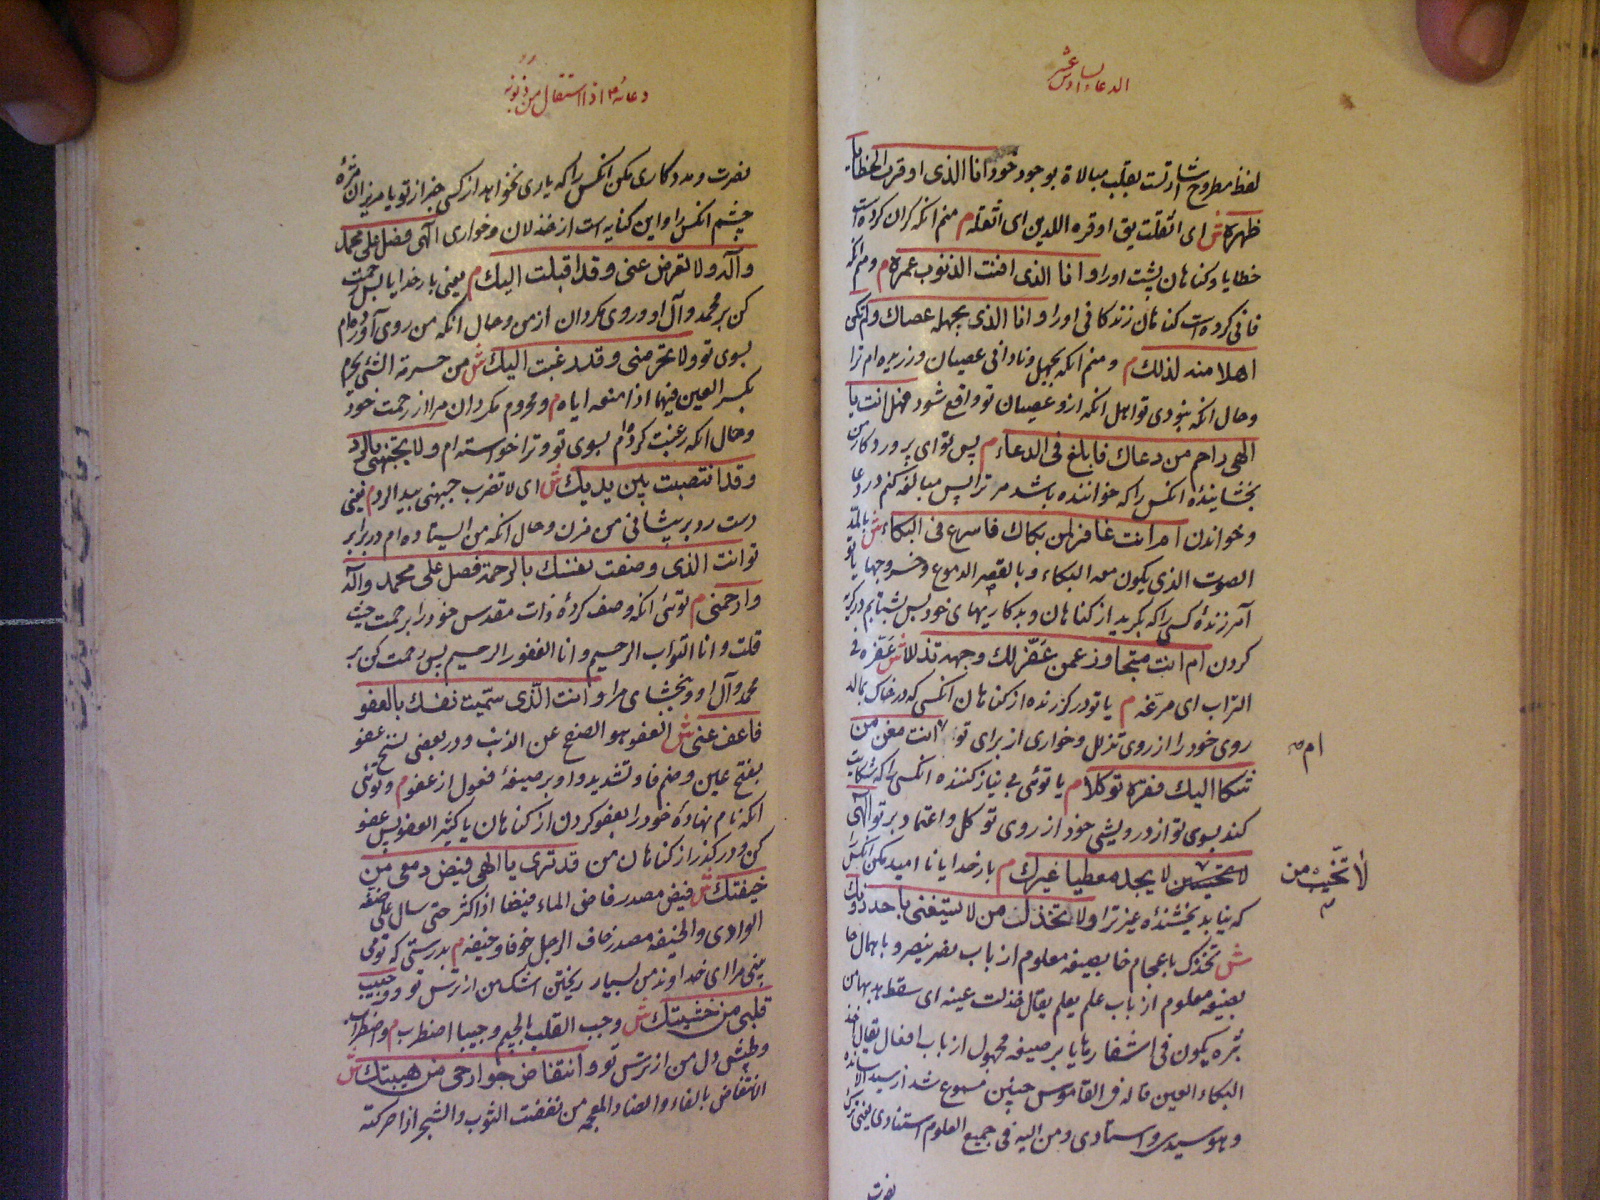 الدعاء السادس عشر
لفظ مطروح شاد تست بقلب مبالاة بوجود خود انا الذی اوقرت الخطایا
ظهره ش ای اثقلت یق اوقره الدین ای اثقله م منم انکه کران کرده است
خطایا و کناهان پشت او را و انا الذی افنت الذنوب عمره م و منم انکه
فانی کرده است کناهان زندکانی او را و انا الذی بجهله عصاک ولم تکن
اهلا منه لذلک م و منم انکه بجهل و نادانی عصیان ورزیده ام ترا
وحال انکه نبودی تو اهل انکه ازو عصیان تو واقع شود هل انت یا
الهی راحم من دعاک فابلغ فی الدعاء م پس توای پروردکار من
بخشاینده انکس را که خواننده باشد مر ترا پس مبالغه کنم در دعا
وخواندن ام انت غافر لمن بکاک فاسرع فی البکاء ش بالمد
الصوت الذی یکون مع البکاء و بالقصر الدموع وخروجها یا تو
آمرزندهٔ کسی را که بکرید از کناهان و بدکاریهای خود پس بشتابم در کریه
کردن ام انت متجاوز عمن عفر لک وجهه تذللا ش عفره فی
التراب ای مرغه م یا تو درکزرنده از کناهان انکسی که در خاک بمالد
روی خود را از روی تذلل و خواری از برای تو ام انت مغن من
شکا الیک فقره توکلا م یا توئی بی نیاز کننده انکسی را که شکایت
کند بسوی تو از درویشی خود از روی توکل و اعتماد بر تو الهی
لا تخیب من لا یجد معطیا غیرک م بار خدایا نا امید مکن انکس را
که نیابد بخشندهٔ غیر ترا ولا تخذل من لا یستغنی باحد دونک
ش تخذل باعجام خا بصیغه معلوم از باب نصر ینصر و باهمال حا
بصیغه معلوم از باب علم یعلم یقال حذلت عینه ای سقط هدبها من
بثره یکون فی اشفارها یا بر صیغه مجهول از باب افعال یقال احذل
البکاء العین قاله فی القاموس چنین مسموع شد از سید الاساتذه
وهو سیدی و استادی و من الیه فی جمیع العلوم استنادی یعنی ترک
نصرت
ام م
لا تخیب من
دعائه ع م اذا استقال من ذنوبه
نصرت و مددکاری مکن انکس را که یاری نخواهد از کسی جز از تو یا مریزان مژهٔ
چشم انکس را و این کنایه است از خذلان و خواری الهی فصل علی محمد
و آله ولا تعرض عنی وقد اقبلت الیک م یعنی بار خدایا پس رحمت
کن بر محمد و آل او و روی مکردان از من و حال انکه من روی آورده ام
بسوی تو ولا تحرمنی وقد رغبت الیک ش من حرمه الشئ یحرمه
بکسر العین فیهما اذا منعه ایاه م و محروم مکردان مرا از رحمت خود
وحال انکه رغبت کرده ام بسوی تو و ترا خواسته ام ولا تجبهنی بالرد
وقد انتصبت بین یدیک ش ای لا تضرب جبهتی بید الرد م یعنی
دست رد بر پیشانی من مزن و حال انکه من ایستاده ام در برابر
تو انت الذی وصفت نفسک بالرحمة فصل علی محمد وآله
وارحمنی م توئی انکه وصف کردهٔ ذات مقدس خود را برحمت حیث
قلت وانا التواب الرحیم وانا الغفور الرحیم پس رحمت کن بر
محمد و آل او و ببخشای مرا وانت الذی سمیت نفسک بالعفو
فاعف عنی ش العفو هو الصفح عن الذنب و در بعضی نسخ عفو
بفتح عین وضم فا و تشدید واو بر صیغهٔ فعول از عفو م و توئی
انکه نام نهادهٔ خود را بعفو کردن از کناهان یا کثیر العفو پس عفو
کن و در کذر از کناهان من قد تری یا الهی فیض دمعی من
خیفتک ش فیض مصدر فاض الماء فیضا اذا کثر حتی سال علی ضفة
الوادی والخیفه مصدر خاف الرجل خوفا وخیفه م بدرستی که تو می
بینی مرا ای خداوند من بسیار ریختن اشک من از ترس تو و وجیب
قلبی من خشیتک ش وجب القلب بالجیم وجیبا اضطرب م واضطراب
وطپش دل من از ترس تو وانتقاض جوارحی من هیبتک ش
الانتفاض بالفاء والضاد المعجمه من نفضت الثوب والشجر اذا حرکته